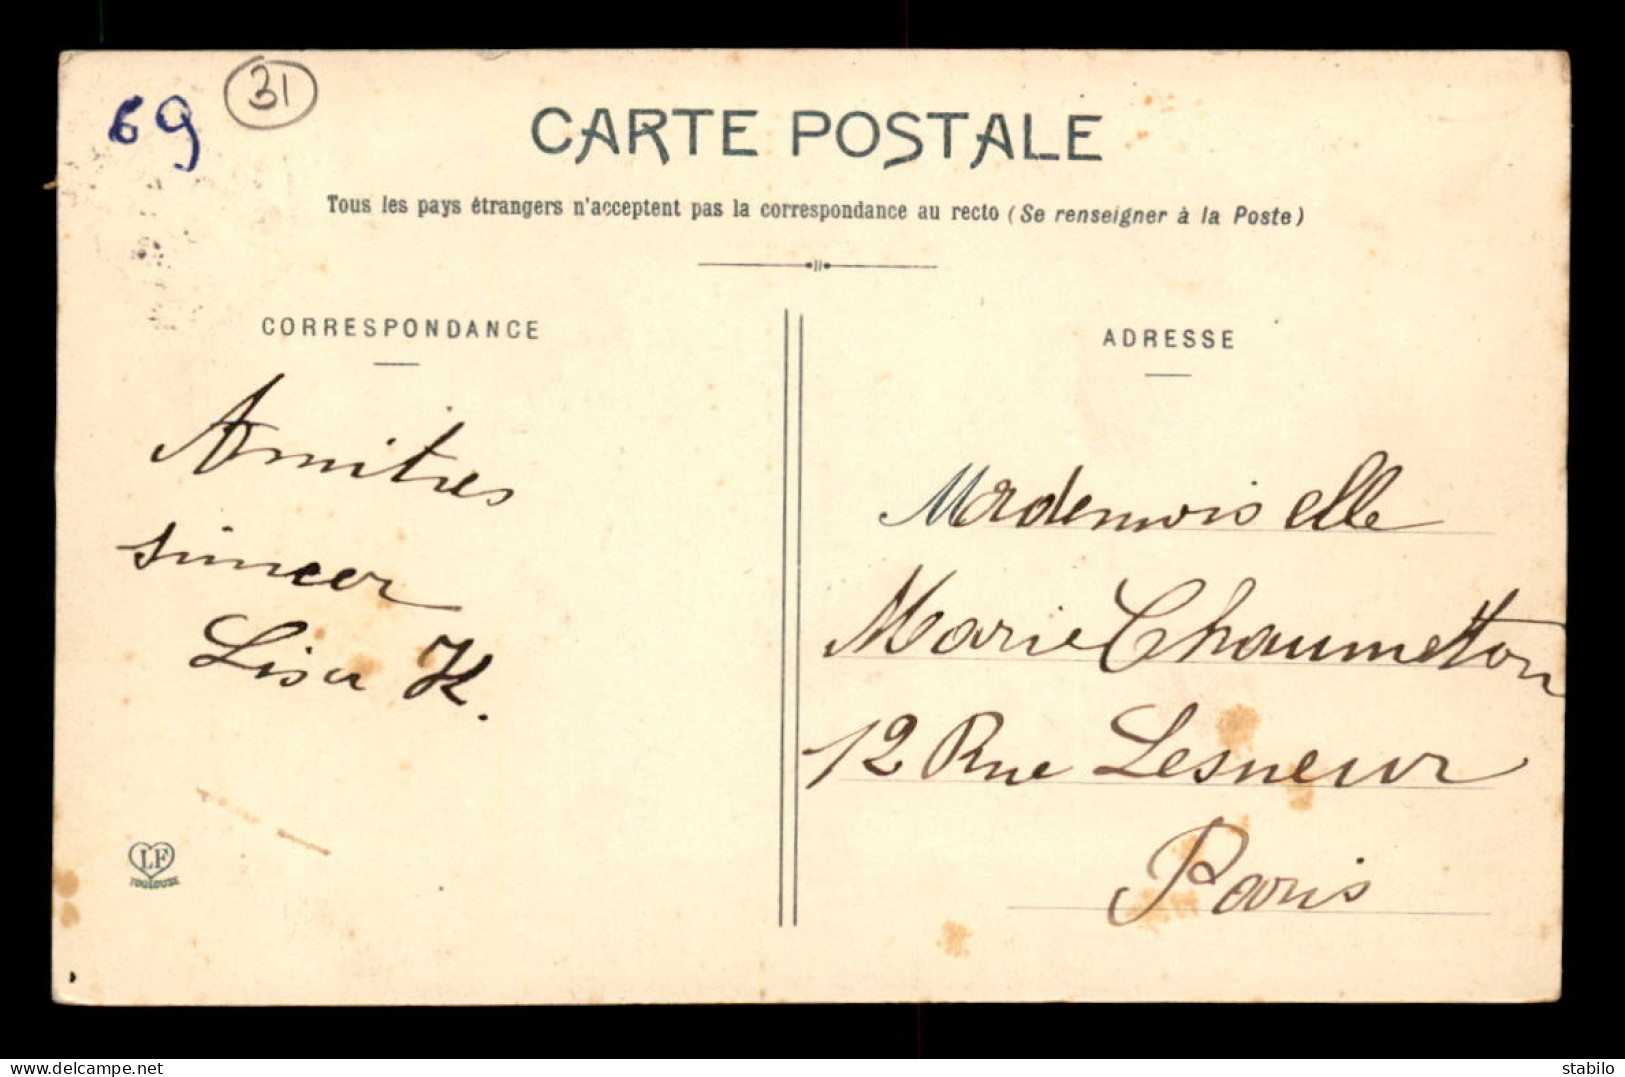 69
31
CARTE POSTALE
Tous les pays étrangers n'acceptent pas la correspondance au recto (Se renseigner à la Poste)
CORRESPONDANCE
Amitiés
sincer
Lisa K.
LF
TOULOUSE
ADRESSE
Mademoiselle
Marie Chaumetton
12 Rue Lesueur
Paris
delcampe.net
stabilo